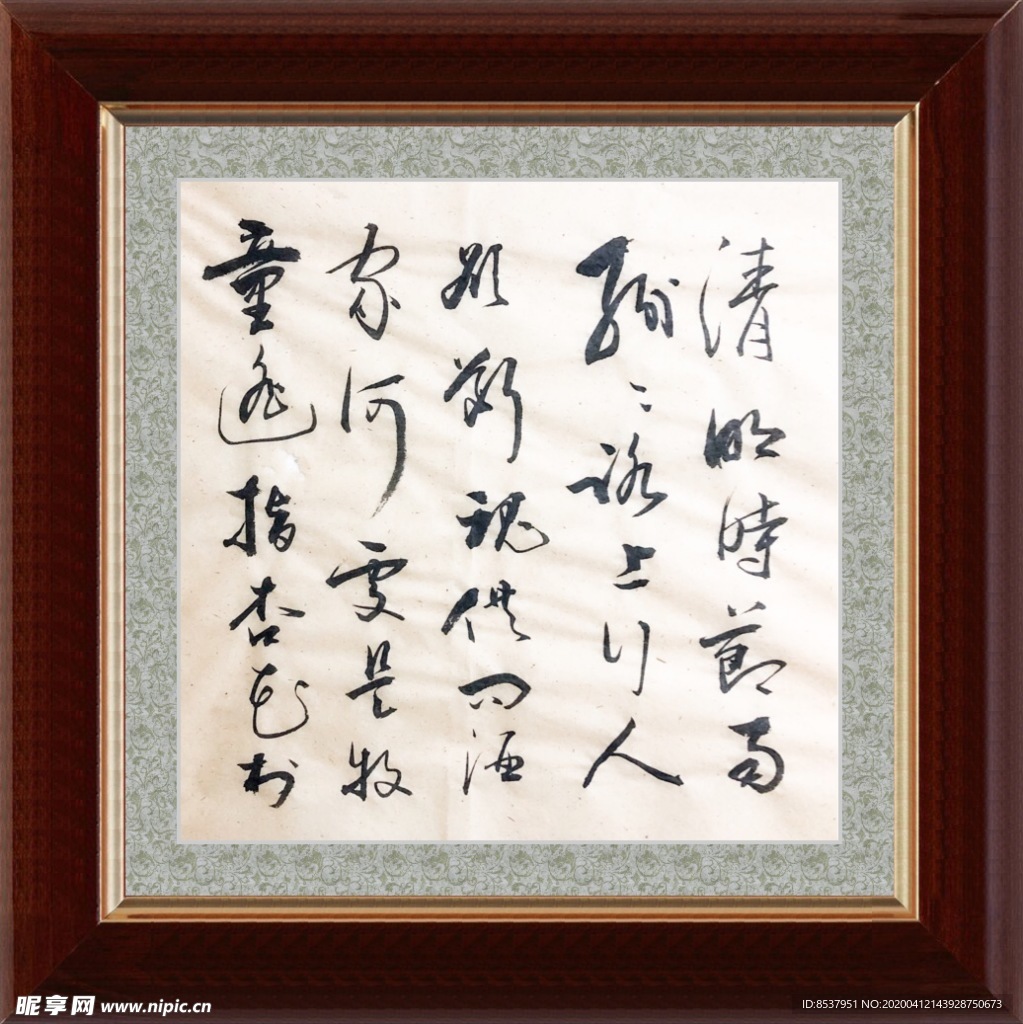 清明時節雨
紛〻路上行人
欲斷魂借问酒
家何處是牧
童遥指杏花村
昵享网 www.nipic.cn
ID:8537951 NO:20200412143928750673